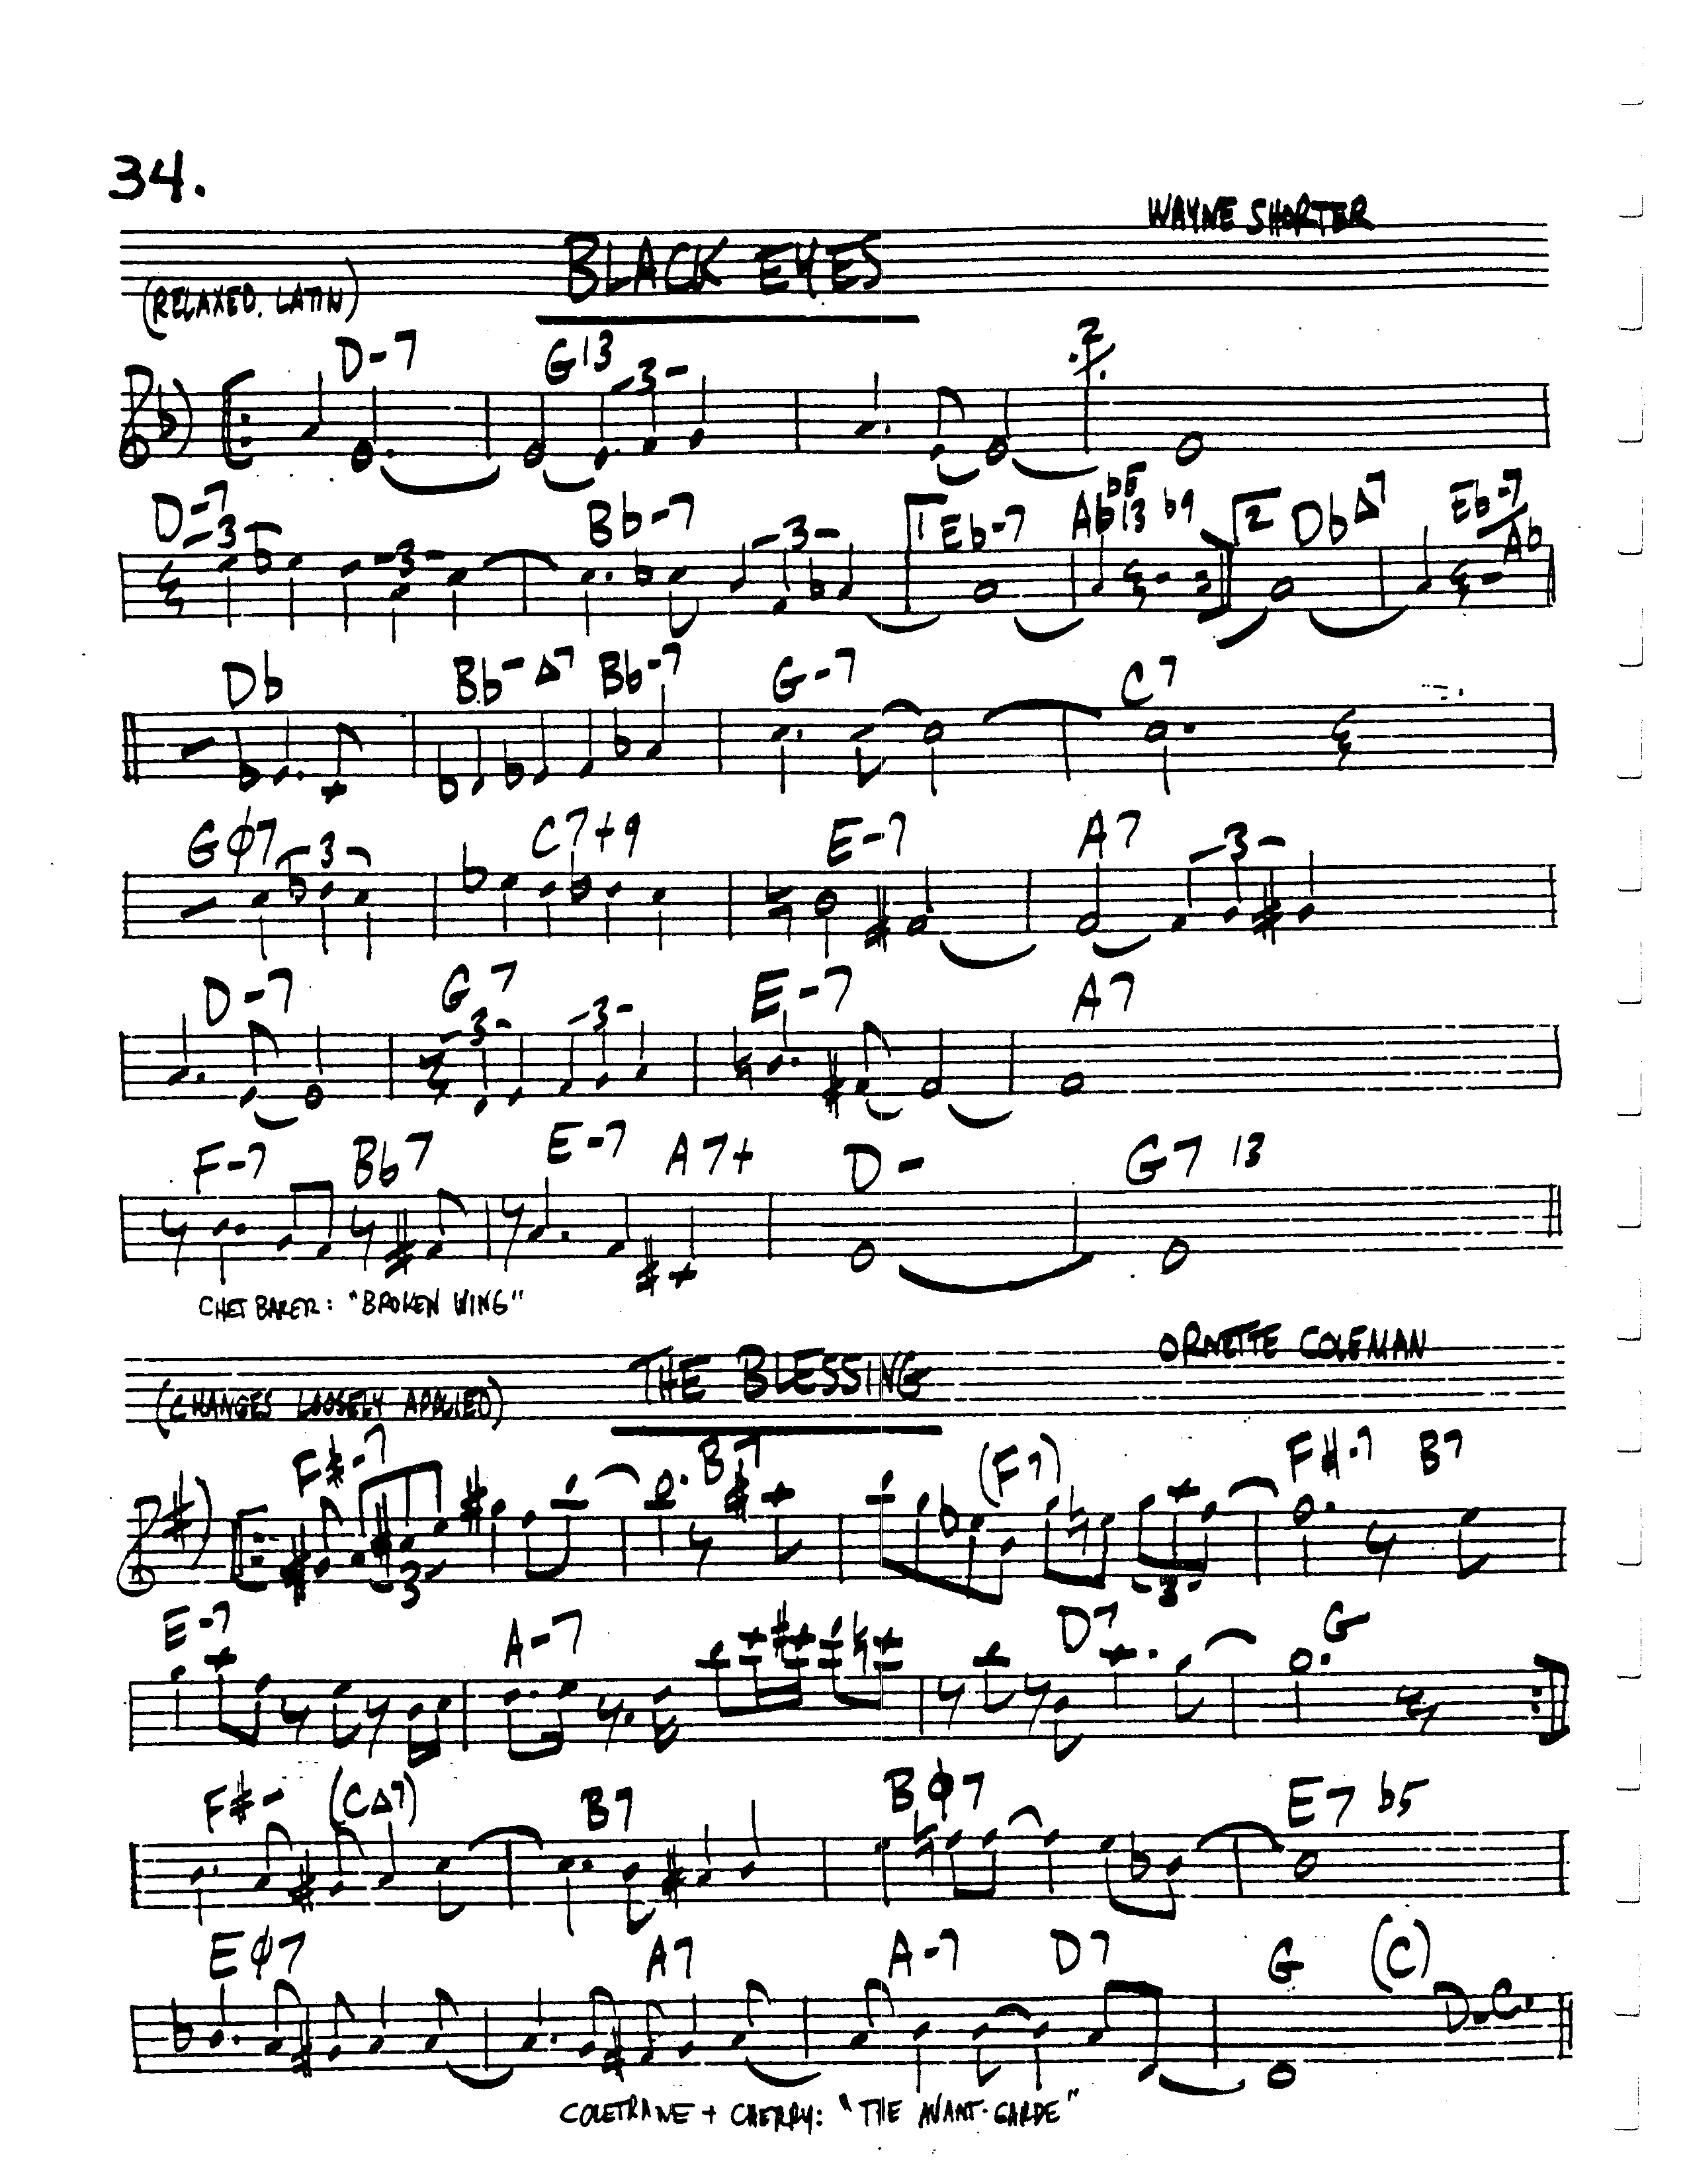 34.
WAYNE SHORTER
BLACK EYES
(RELAXED LATIN)
D-7 G13 3 2
D-7 3 3 Bb-7 3 1 Eb-7 Ab13 b5 b9 2 DbΔ7 Eb-7 Ab
Db Bb-Δ7 Bb-7 G-7 C7
Gø7 3 C7+9 E-7 A7 3
D-7 G7 3 3 E-7 A7
F-7 Bb7 E-7 A7+ D- G7 13
CHET BAKER: "BROKEN WING"
ORNETTE COLEMAN
THE BLESSING
(CHANGES LOOSELY APPLIED)
F#-7 3 B7 (F7) 3 F#-7 B7
E-7 A-7 D7 G
F#- (CΔ7) B7 Bø7 E7 b5
Eø7 A7 A-7 D7 G (C) D.C.
COLETRANE + CHERRY: "THE AVANT-GARDE"